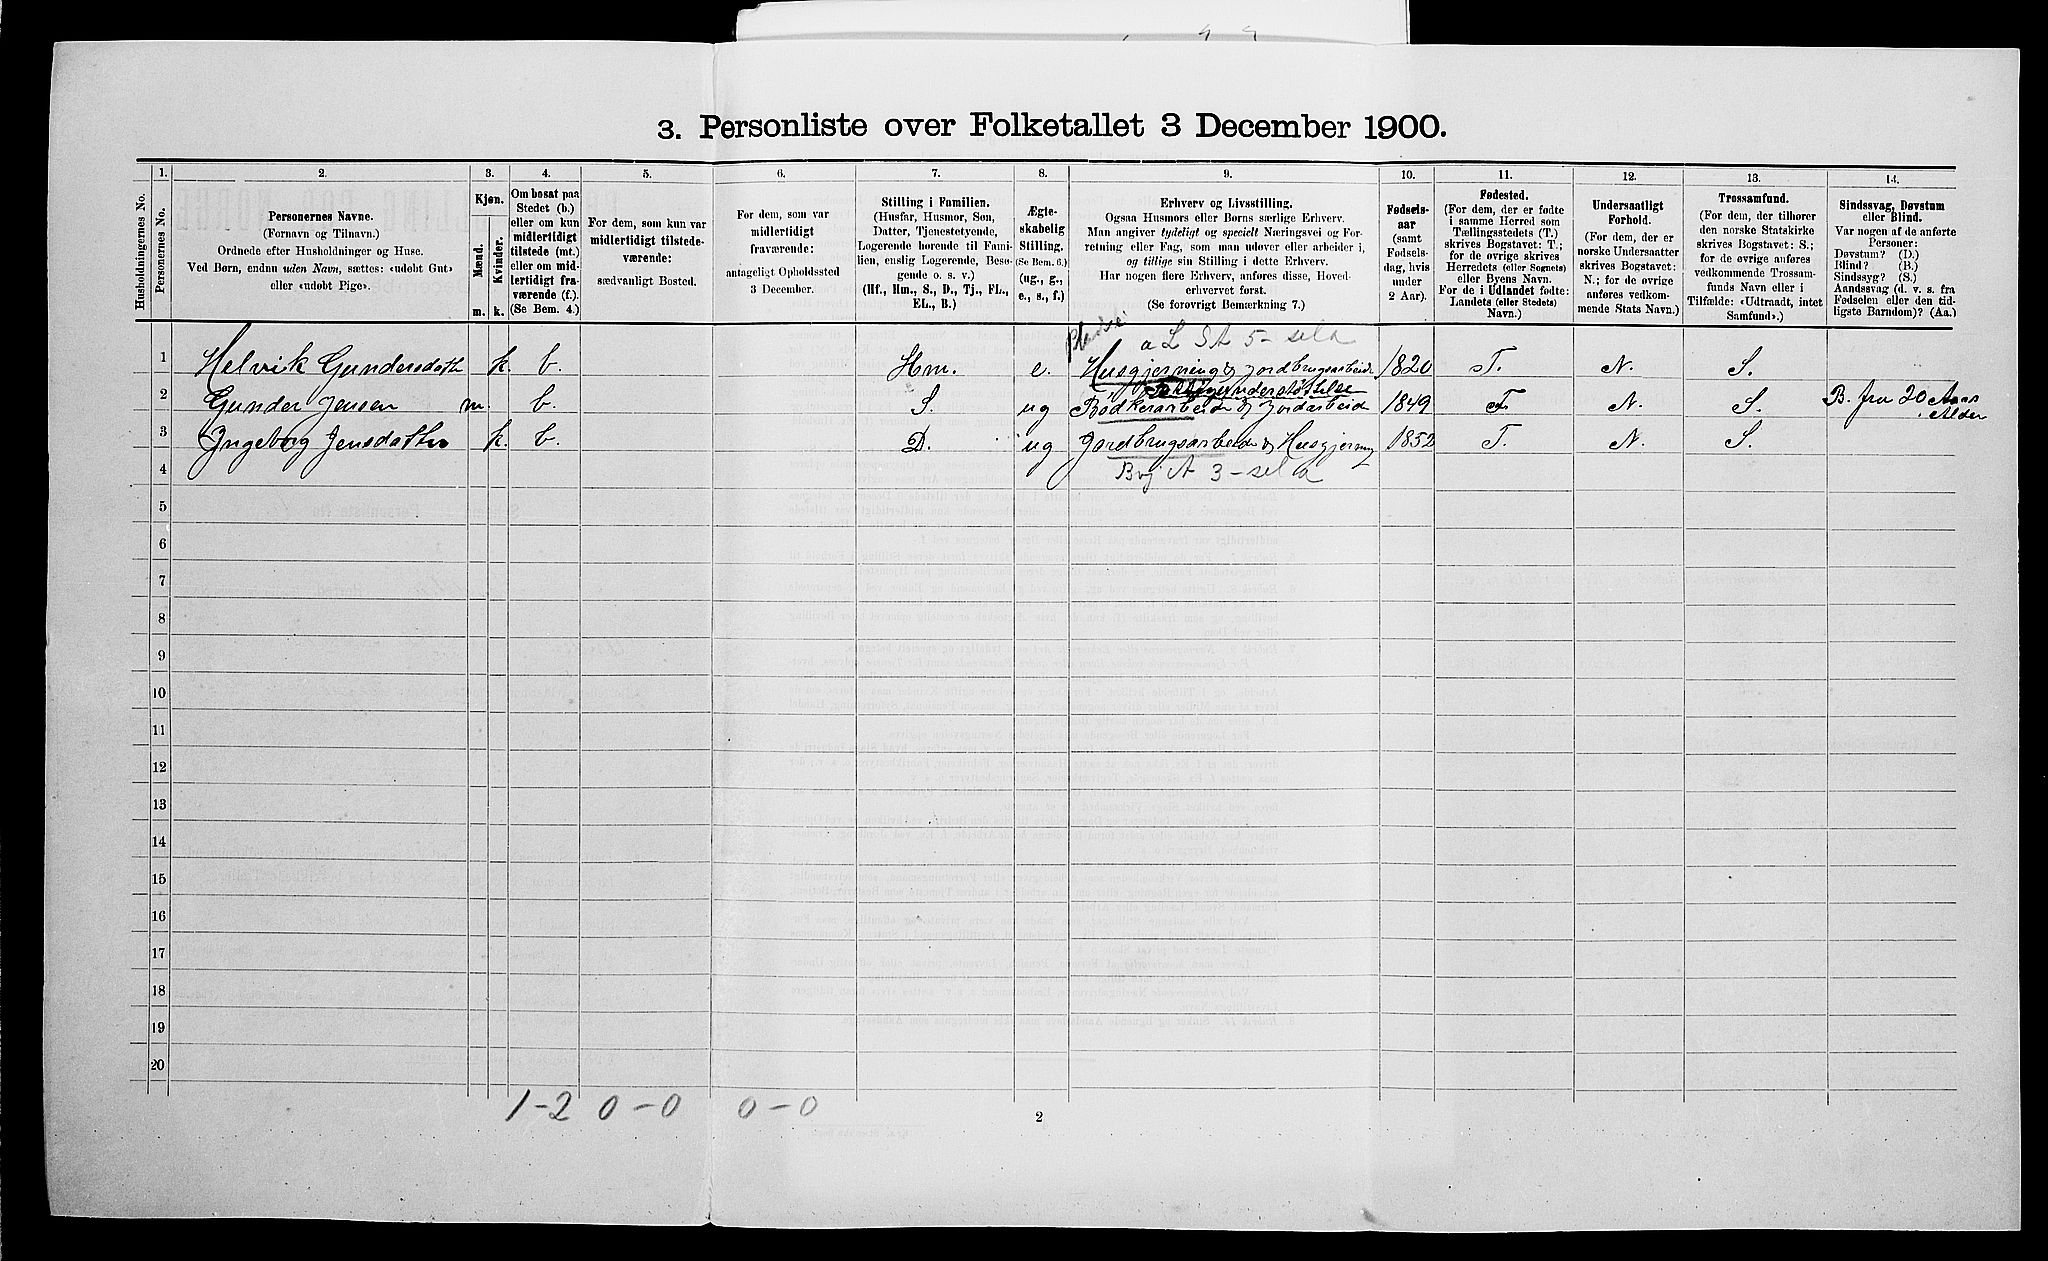 3. Personliste over Folketallet 3 December 1900.
Husholdningernes No.
1.
Personernes No.
2.
Personernes Navne.
(Fornavn og Tilnavn.)
Ordnede efter Husholdninger og Huse.
Ved Børn, endnu uden Navn, sættes: «udøbt Gut»
eller «udøbt Pige».
3.
Kjøn.
Mænd.
Kvinder.
m. k.
4.
Om bosat paa
Stedet (b.)
eller om kun
midlertidigt
tilstede (mt.)
eller om mid-
lertidigt fra-
værende (f.).
(Se Bem. 4.)
5.
For dem, som kun var
midlertidigt tilstede-
værende:
sædvanligt Bosted.
6.
For dem, som var
midlertidigt
fraværende:
antageligt Opholdssted
3 December.
7.
Stilling i Familien.
(Husfar, Husmor, Søn,
Datter, Tjenestetyende,
Logerende hørende til Fami-
lien, enslig Logerende, Besø-
gende o. s. v.)
(Hf., Hm., S., D., Tj., FL.,
EL., B.)
8.
Ægte-
skabelig
Stilling.
(Se Bem. 6.)
(ug., g.,
e., s., f.)
9.
Erhverv og Livsstilling.
Ogsaa Husmors eller Børns særlige Erhverv.
Man angiver tydeligt og specielt Næringsvei og For-
retning eller Fag, som man udøver eller arbeider i,
og tillige sin Stilling i dette Erhverv.
Har nogen flere Erhverv, anføres disse, Hoved-
erhvervet først.
(Se forøvrigt Bemærkning 7.)
10.
Fødsels-
aar
(samt
Fødsels-
dag, hvis
under
2 Aar).
11.
Fødested.
(For dem, der er fødte
i samme Herred som
Tællingsstedets (T.)
skrives Bogstavet: T.;
for de øvrige skrives
Herredets (eller Sognets)
eller Byens Navn.
For de i Udlandet fødte:
Landets (eller Stedets)
Navn.)
12.
Undersaatligt
Forhold.
(For dem, der er
norske Undersaatter
skrives Bogstavet:
N.; for de øvrige
anføres vedkom-
mende Stats Navn.)
13.
Trossamfund.
(For dem, der tilhører
den norske Statskirke
skrives Bogstavet: S.;
for de øvrige anføres
vedkommende Trossam-
funds Navn eller i
Tilfælde: «Udtraadt, intet
Samfund».)
14.
Sindssvag, Døvstum
eller Blind.
Var nogen af de anførte
Personer:
Døvstum? (D.)
Blind? (B.)
Sindssyg? (S.)
Aandssvag (d. v. s. fra
Fødselen eller den tid-
ligste Barndom)? (Aa.)
a L S A 5 -
1 Helvik Gundersdatter k. b. Hm. e. Husgjerning & Jordbrugsarbeide 1820 T. N. S.
Fattigunderstøttelse
2 Gunder Jensen m. b. S. ug Bødkerarbeide & Jordarbeide 1849 T N. S. B. fra 20 Aars
Alder
3 Ingeborg Jensdatter k. b. D. ug Jordbrugsarbeide & Husgjerning 1852 T. N. S.
4 A 3 -
5
6
7
8
9
10
11
12
13
14
15
16
17
18
19
20
1-2 0-0 0-0
2